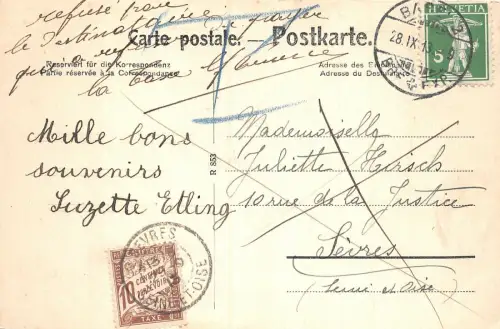 refusé par
le Destinataire
la taxe
Carte postale. – Postkarte.
Reserviert für die Korrespondenz
Partie réservée à la Correspondance
Adresse des
Adresse du
HELVETIA
5
BAS
28.IX.13
T
Mille bons
souvenirs
Suzette Etling
R 853
Mademoiselle
Juliette Hirsch
10 rue de la Justice
Sèvres
(Seine et Oise)
SEVRES
SEINE ET OISE
10
TAXE